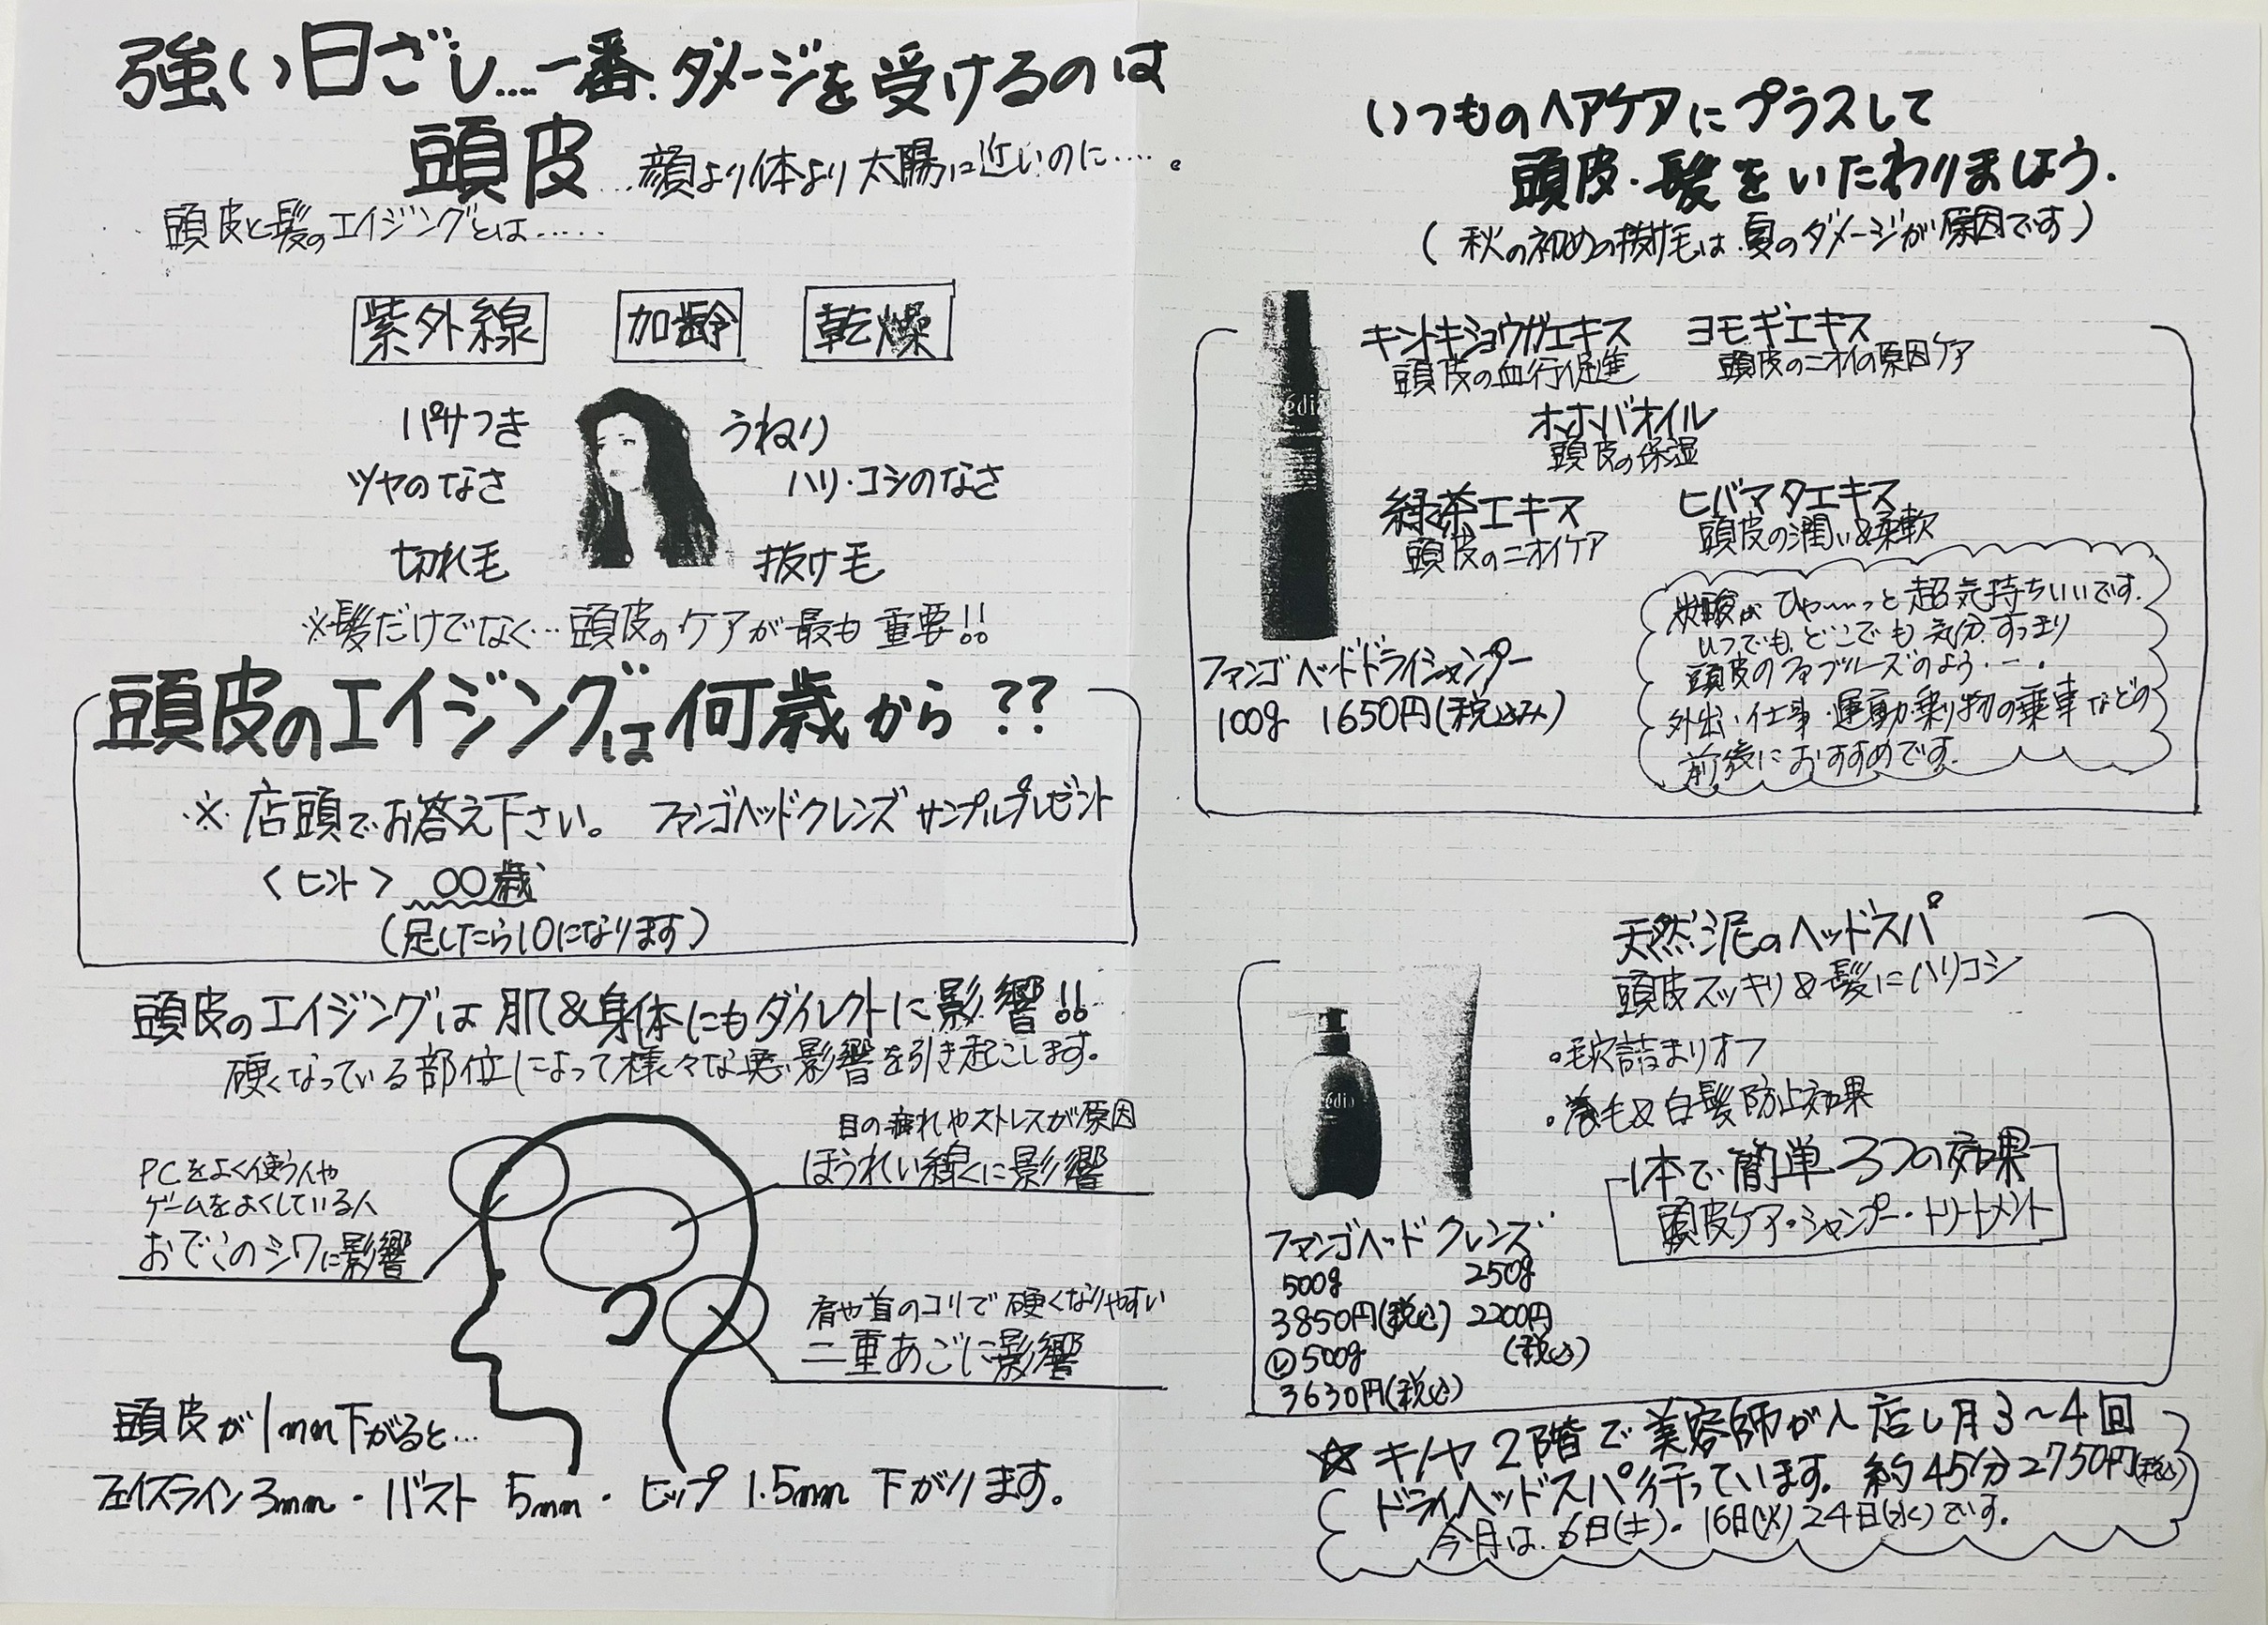 強い日ざし....一番.ダメージを受けるのは
頭皮...顔より体より太陽に近いのに.....。
頭皮と髪のエイジングとは.....
紫外線 加齢 乾燥
パサつき うねり
ツヤのなさ ハリ・コシのなさ
切れ毛 抜け毛
※髪だけでなく...頭皮のケアが最も重要!!
頭皮のエイジングは何歳から??
※店頭でお答え下さい。 ファンゴヘッドクレンズ サンプルプレゼント
<ヒント> 〇〇歳
(足したら10になります)
頭皮のエイジングは肌&身体にもダイレクトに影響!!
硬くなっている部位によって様々な悪影響を引き起こします。
目の疲れやストレスが原因
ほうれい線くに影響
PCをよく使う人や
ゲームをよくしている人
おでこのシワに影響
肩や首のコリで硬くなりやすい
二重あごに影響
頭皮が1mm下がると...
フェイスライン3mm・バスト 5mm・ヒップ 1.5mm 下がります。
いつものヘアケアにプラスして
頭皮・髪をいたわりましょう.
(秋の初めの抜け毛は夏のダメージが原因です)
キントキショウガエキス ヨモギエキス
頭皮の血行促進 頭皮のニオイの原因ケア
ホホバオイル
頭皮の保湿
緑茶エキス ヒバマタエキス
頭皮のニオイケア 頭皮の潤い&柔軟
炭酸がひゃ〜〜っと超気持ちいいです.
いつでも、どこでも気分すっきり
頭皮のファブリーズのよう・ー・
外出・仕事・運動・乗り物の乗車などの
前後におすすめです.
ファンゴヘッドドライシャンプー
100g 1650円(税込み)
天然泥のヘッドスパ
頭皮スッキリ&髪にハリコシ
・毛穴詰まりオフ
・薄毛&白髪防止効果
1本で簡単3つの効果
頭皮ケア・シャンプー・トリートメント
édi
ファンゴヘッド クレンズ
500g 250g
3850円(税込) 2200円
(税込)
㋹500g
3630円(税込)
☆キノヤ2階で美容師が入店し月3〜4回
ドライヘッドスパ行っています。約45分2750円(税込)
今月は.6日(土)・16日(火)24日(水)です。